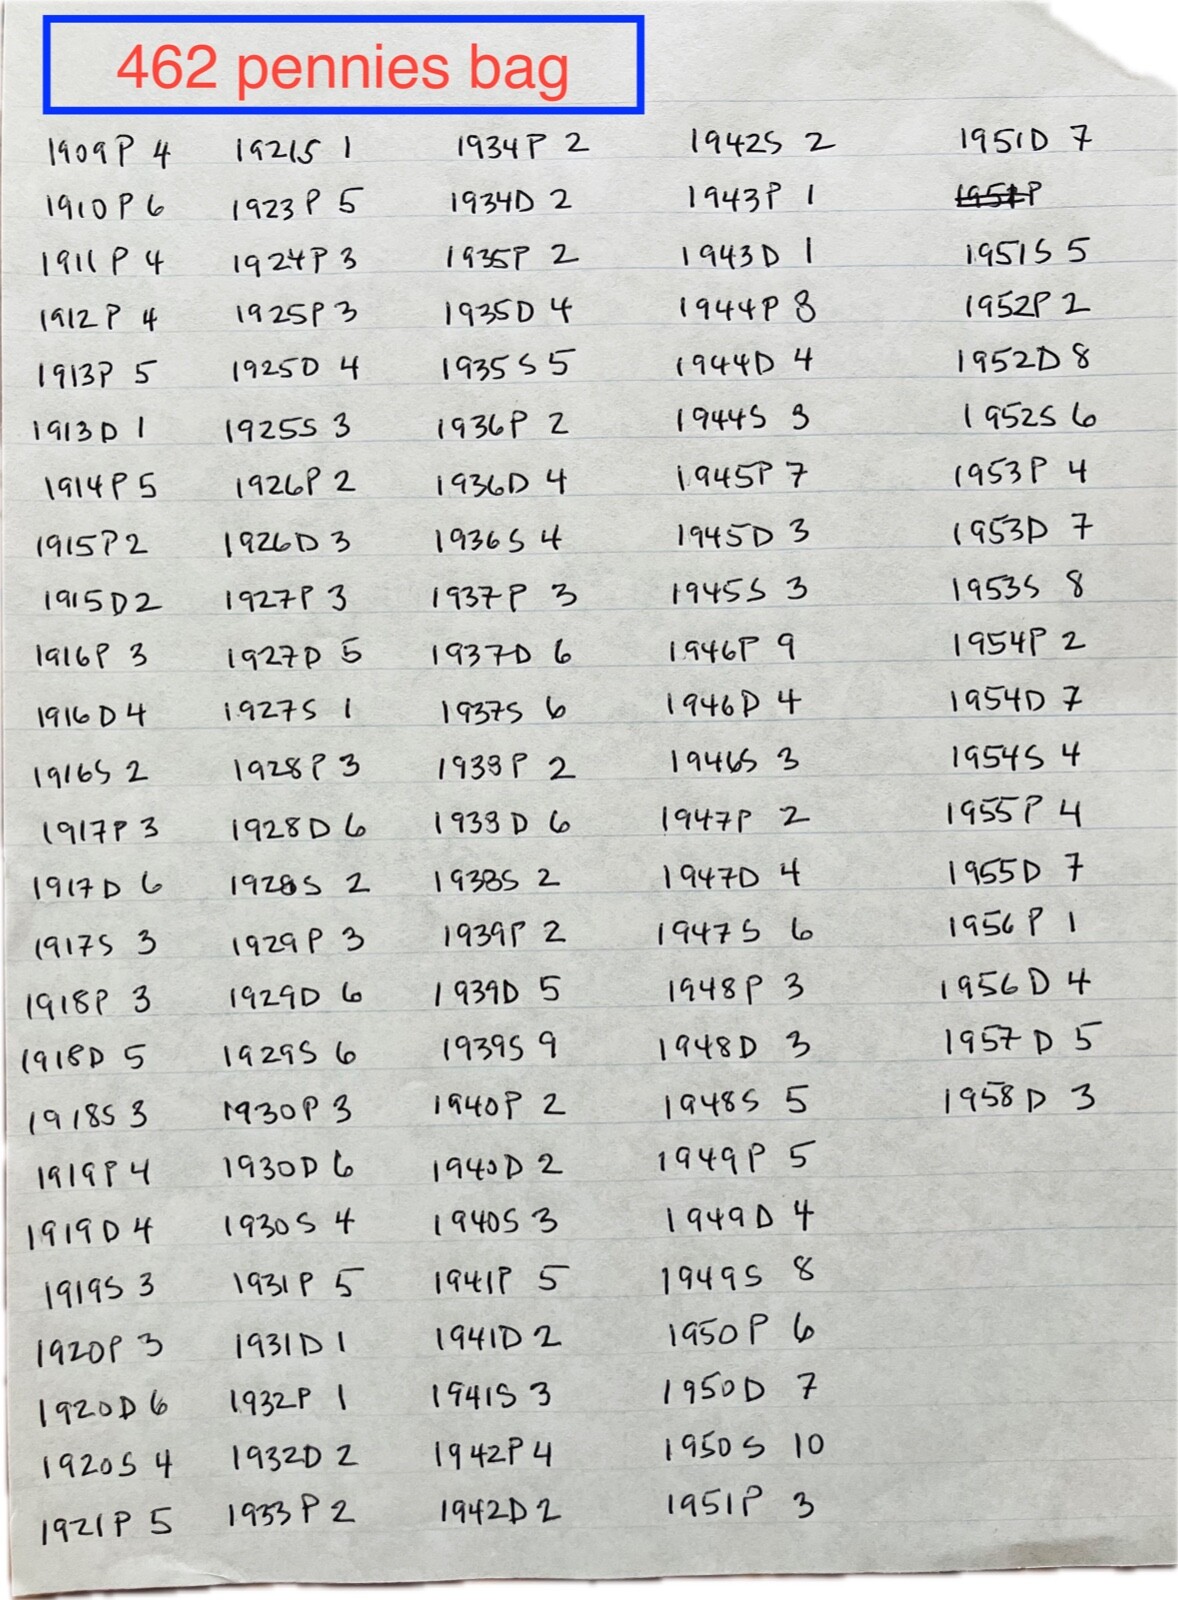 462 pennies bag
1909P 4
1910P 6
1911P 4
1912P 4
1913P 5
1913D 1
1914P 5
1915P 2
1915D 2
1916P 3
1916D 4
1916S 2
1917P 3
1917D 6
1917S 3
1918P 3
1918D 5
1918S 3
1919P 4
1919D 4
1919S 3
1920P 3
1920D 6
1920S 4
1921P 5
1921S 1
1923P 5
1924P 3
1925P 3
1925D 4
1925S 3
1926P 2
1926D 3
1927P 3
1927D 5
1927S 1
1928P 3
1928D 6
1928S 2
1929P 3
1929D 6
1929S 6
1930P 3
1930D 6
1930S 4
1931P 5
1931D 1
1932P 1
1932D 2
1933P 2
1934P 2
1934D 2
1935P 2
1935D 4
1935S 5
1936P 2
1936D 4
1936S 4
1937P 3
1937D 6
1937S 6
1938P 2
1938D 6
1938S 2
1939P 2
1939D 5
1939S 9
1940P 2
1940D 2
1940S 3
1941P 5
1941D 2
1941S 3
1942P 4
1942D 2
1942S 2
1943P 1
1943D 1
1944P 8
1944D 4
1944S 3
1945P 7
1945D 3
1945S 3
1946P 9
1946D 4
1946S 3
1947P 2
1947D 4
1947S 6
1948P 3
1948D 3
1948S 5
1949P 5
1949D 4
1949S 8
1950P 6
1950D 7
1950S 10
1951P 3
1951D 7
1951P
1951S 5
1952P 2
1952D 8
1952S 6
1953P 4
1953D 7
1953S 8
1954P 2
1954D 7
1954S 4
1955P 4
1955D 7
1956P 1
1956D 4
1957D 5
1958D 3